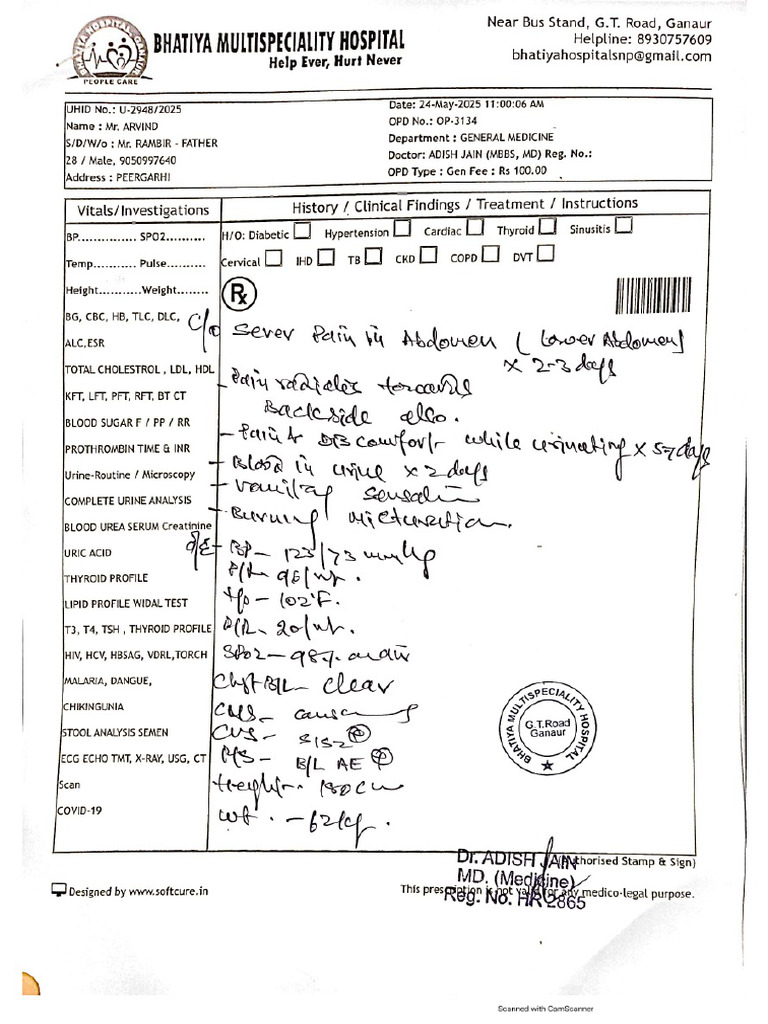 BHATIYA HOSPITAL GANAUR
PEOPLE CARE
BHATIYA MULTISPECIALITY HOSPITAL
Help Ever, Hurt Never
Near Bus Stand, G.T. Road, Ganaur
Helpline: 8930757609
bhatiyahospitalsnp@gmail.com
UHID No.: U-2948/2025
Name : Mr. ARVIND
S/D/W/o : Mr. RAMBIR - FATHER
28 / Male, 9050997640
Address : PEERGARHI
Date: 24-May-2025 11:00:06 AM
OPD No.: OP-3134
Department : GENERAL MEDICINE
Doctor: ADISH JAIN (MBBS, MD) Reg. No.:
OPD Type : Gen Fee : Rs 100.00
Vitals/Investigations
History / Clinical Findings / Treatment / Instructions
BP............... SPO2..........
H/O: Diabetic Hypertension Cardiac Thyroid Sinusitis
Temp........... Pulse..........
Cervical IHD TB CKD COPD DVT
Height..........Weight........
Rx
BG, CBC, HB, TLC, DLC,
ALC,ESR
TOTAL CHOLESTROL , LDL, HDL
KFT, LFT, PFT, RFT, BT CT
BLOOD SUGAR F / PP / RR
PROTHROMBIN TIME & INR
Urine-Routine / Microscopy
COMPLETE URINE ANALYSIS
BLOOD UREA SERUM Creatinine
URIC ACID
THYROID PROFILE
LIPID PROFILE WIDAL TEST
T3, T4, TSH , THYROID PROFILE
HIV, HCV, HBSAG, VDRL,TORCH
MALARIA, DANGUE,
CHIKINGUNIA
STOOL ANALYSIS SEMEN
ECG ECHO TMT, X-RAY, USG, CT
Scan
COVID-19
C/o Sever Pain in Abdomen (Lower Abdomen)
x 2-3 days
- Pain radiates towards
Backside also.
- Pain & Discomfort while urinating x 5-7 days
- Blood in urine x 2 days
- vomiting sensation
- Burning micturation.
O/E - BP - 123/73 mmHg
P/R - 96/mt.
T/o - 102°F.
R/R - 20/mt.
SPO2 - 98% on air
Chest B/L - clear
CNS -
CVS - S1S2
RS - B/L AE
Height - 180 cm
wt. - 62 kg.
BHATIYA MULTISPECIALITY HOSPITAL
G.T.Road
Ganaur
(Authorised Stamp & Sign)
Dr. ADISH JAIN
MD. (Medicine)
Reg. No. HR 2865
Designed by www.softcure.in
This prescription is not valid for any medico-legal purpose.
Scanned with CamScanner